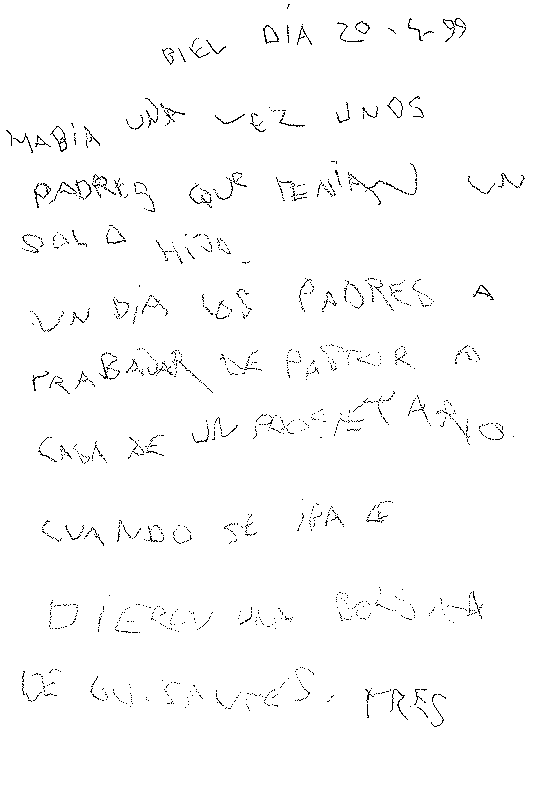 BIEL DÍA 20-4-99
HABÍA UÑA VEZ UNOS
PADRES QUE TENÍAN UN
SOLO HIJO.
UN DÍA LOS PADRES A
TRABAJAR DE PASTOR A
CASA DE UN PROPIETARIO.
CUANDO SE IBA LE
DIERON UNA BOLSITA
DE GUISANTES. TRES